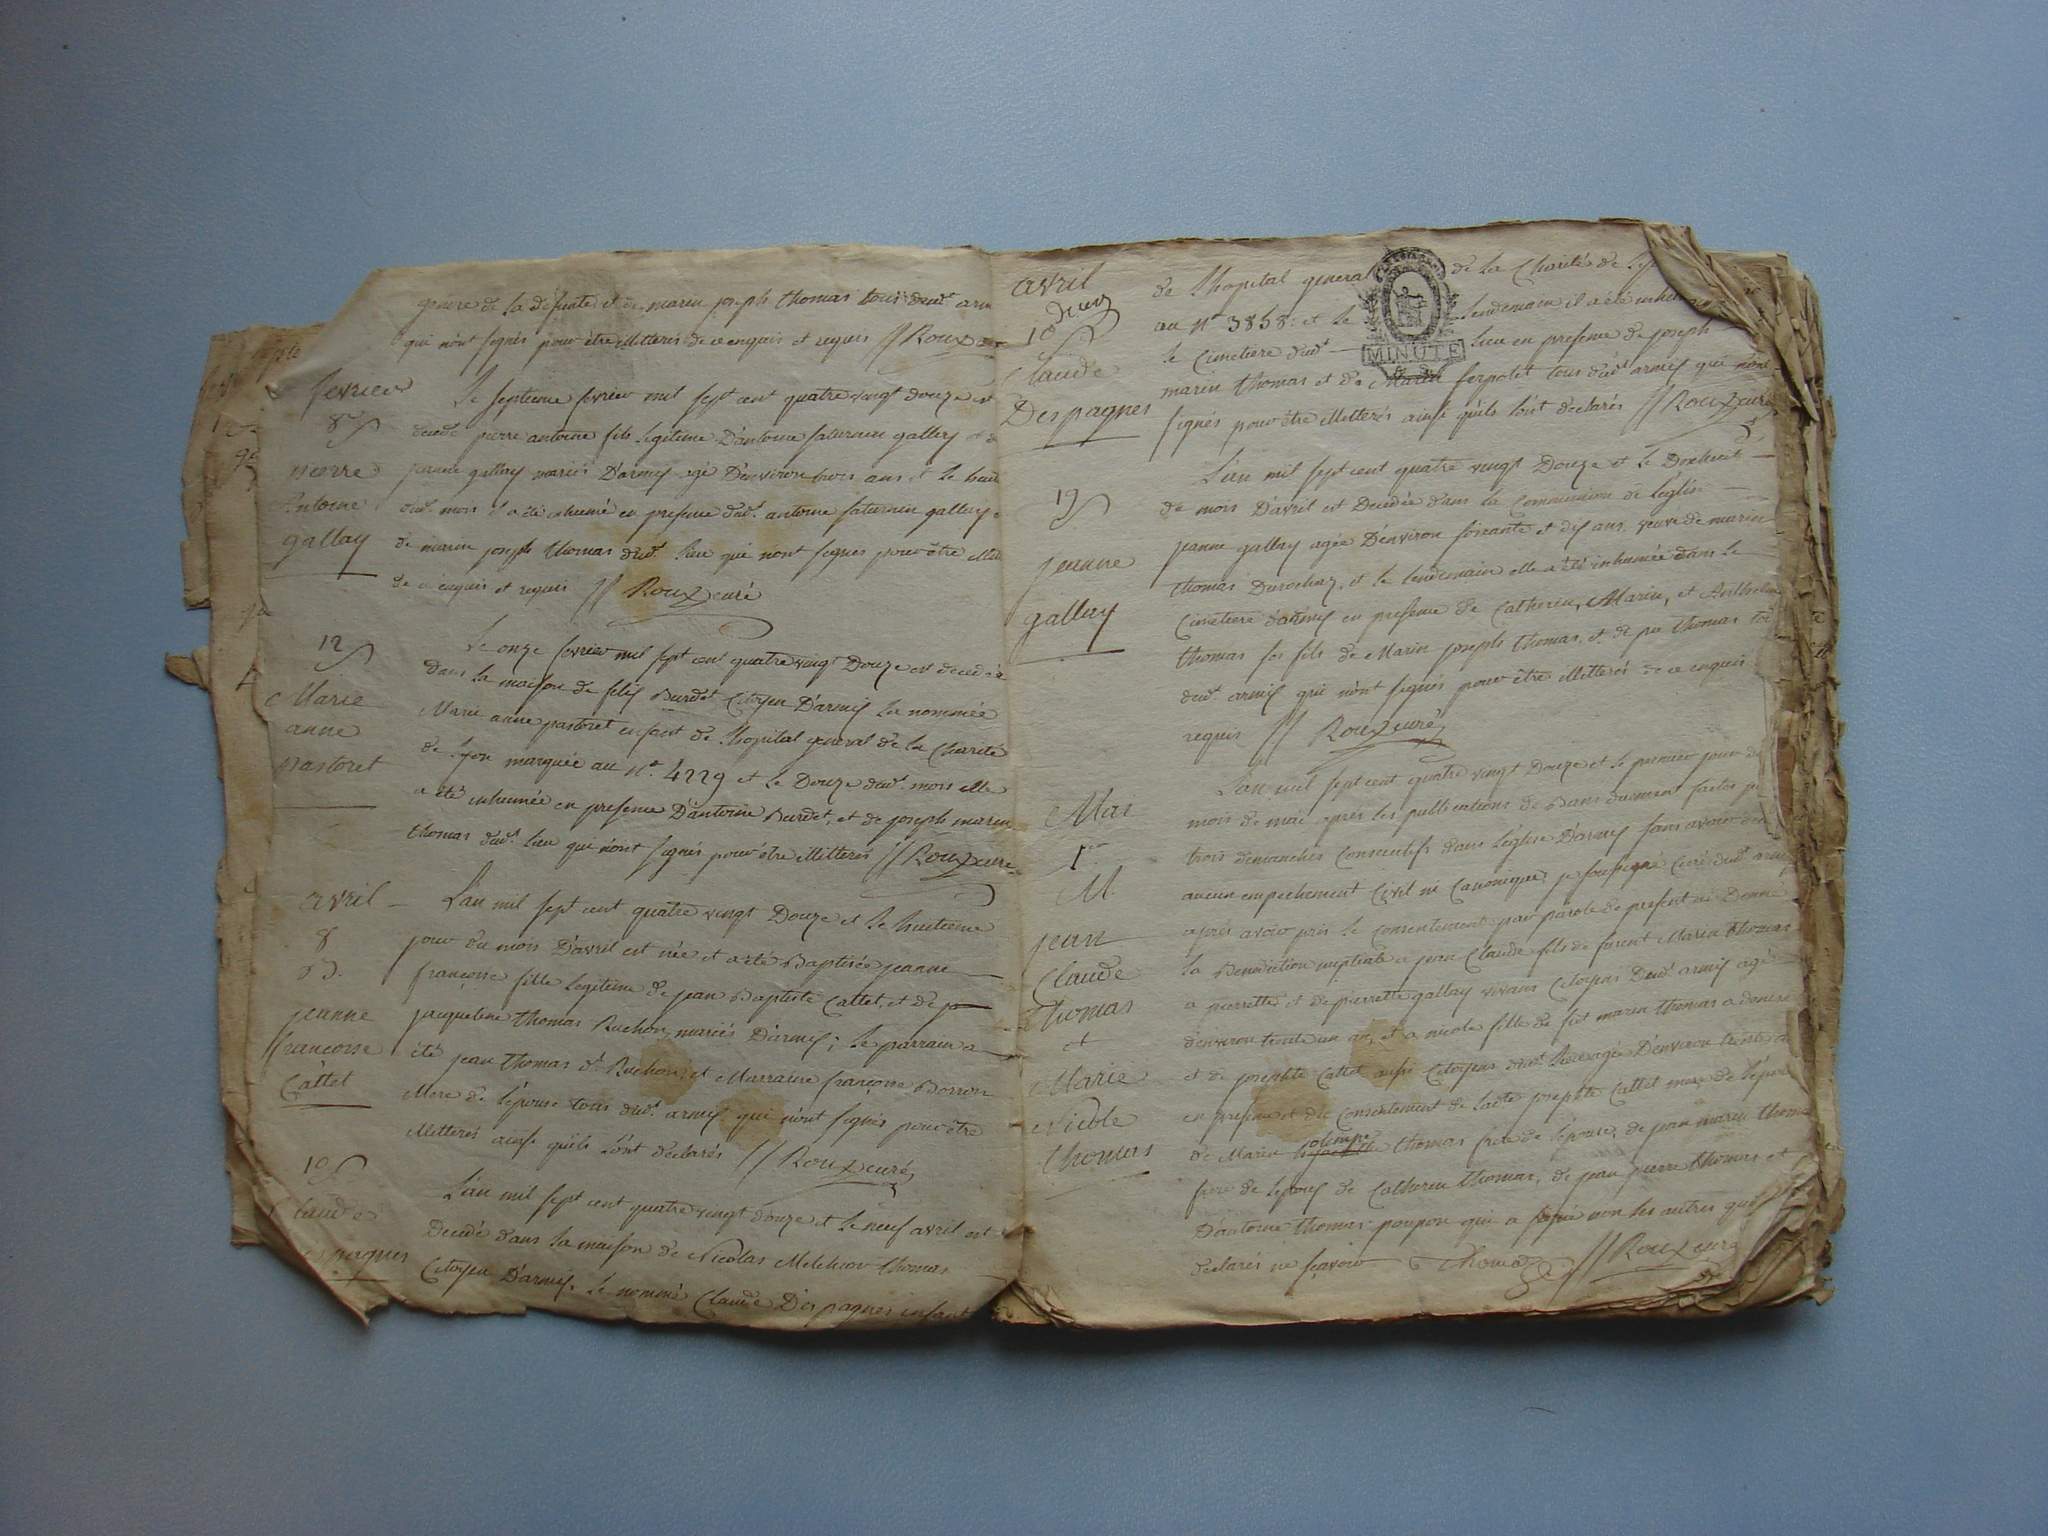 genere de la defunte et de marin joseph thomas tous dud.t arm
qui n'ont signés pour être illitterés de ce enquis et requis // Roux
fevrier
8 S
pierre
Antoine
gallay
Le septieme fevrier mil sept cent quatre vingt douze est
decedé pierre antoine fils legitime D'antoine saturnin gallay et de
jeanne gallay mariés D'armix agé D'environ trois ans et le huit
dud. mois il a été inhumé en presence dud. antoine saturnin gallay
de marin joseph thomas dud.t lieu qui n'ont signés pour être illit
de ce enquis et requis // Roux curé
12 S
Marie
anne
pastoret
Le onze fevrier mil sept cent quatre vingt Douze est decedée
dans la maison de felix Burdet Citoyen D'armix la nommée
Marie anne pastoret enfant de l'hopital general de la Charité
de lyon marquée au N.o 4229 et le Douze dud.t mois elle
a été inhumée en presence D'antoine Burdet, et de joseph marin
thomas dud.t lieu qui n'ont signés pour être illitterés // Roux curé
avril
8
B.
jeanne
françoise
Cattet
L'an mil sept cent quatre vingt Douze et le huitieme
jour du mois D'avril est née et a été Baptisée jeanne
françoise fille legitime de jean Baptiste Cattet, et de
jacqueline thomas Ruchon, mariés D'armix; le parrain a
été jean thomas d.t Ruchon; et Marraine françoise Borron
Mere de l'epouse tous dud.t armix qui n'ont signés pour être
illitterés ainsi qu'ils l'ont declarés // Roux curé
10 S
Claude
Despagnes
L'an mil sept cent quatre vingt douze et le neuf avril est
Decedé dans la maison de Nicolas Melchior thomas
Citoyen D'armix le nommé Claude Despagnes enfant
avril
10 S
Claude
Despagnes
de l'hopital general de la Charité de
au N.o 3858: et le lendemain il a été inhumé
le Cimetiere dud.t lieu en presence de joseph
marin thomas et de Marin serpolet tous dud.t armix qui n'ont
signés pour être illitterés ainsi qu'ils l'ont declarés // Roux curé
MINUTE
19 S
jeanne
gallay
L'an mil sept cent quatre vingt Douze et le Dixhuit
de mois D'avril est Decedée dans la Communion de l'eglise
jeanne gallay agée D'environ soixante et dix ans, veuve de marin
thomas Durochay, et le lendemain elle a été inhumée dans le
Cimetiere d'armix en presence de Catherin, Marin, et Anthelme
thomas ses fils de Marin joseph thomas, et de thomas
dud.t armix qui n'ont signés pour être illitterés de ce enquis
requis // Roux curé
Mai
1.er
M.
jean
Claude
Thomas
et
Marie
Nicole
thomas
L'an mil sept cent quatre vingt Douze et le premier jour du
mois de mai après les publications de Bans duement faites
trois dimanches Consecutifs dans l'eglise D'armix sans avoir
aucun empechement Civil ni Canonique, je soussigné Curé dud.t armix
après avoir pris le consentement par parole de present ai Donné
la Benediction nuptiale a jean Claude fils de Marin thomas
a pierrette et de pierrette gallay vivans Citoyens Dud.t armix agé
d'environ trente un an, et a nicole fille de feu marin thomas
et de josephte Cattet aussi Citoyens dud.t lieu agée D'environ trente
en presence et du Consentement de lad.te josephte Cattet mere de l'epouse
de Marin olimpe thomas frere de l'epouse, de jean marin thomas
frere de l'epoux de Catherin thomas, de jean pierre thomas et
D'antoine thomas poupon qui a signé non les autres
declarés ne sçavoir Thomas // Roux curé